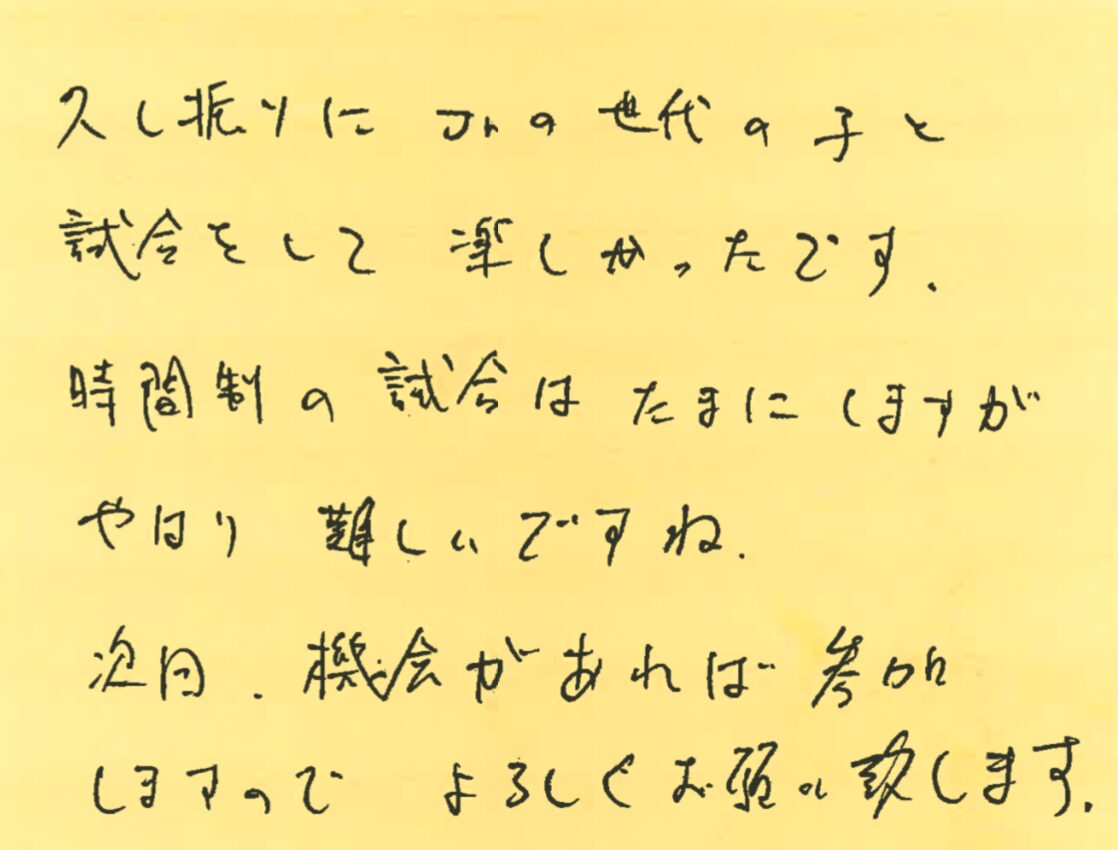 久し振りに Jrの世代の子と
試合をして 楽しかったです.
時間制の試合は たまにしますが
やはり 難しいですね.
次回. 機会があれば 参加
しますので よろしくお願い致します.